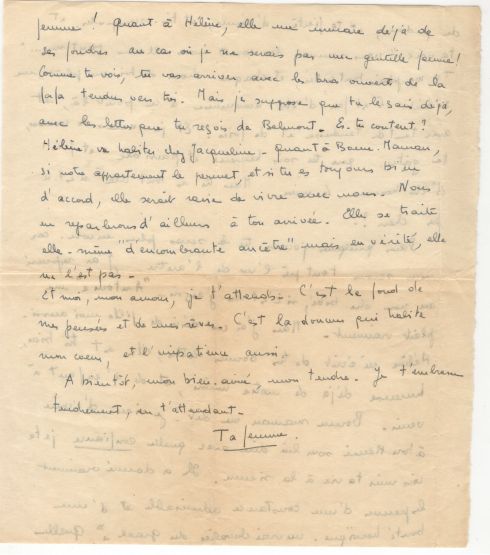 femme ! Quant à Hélène, elle me menace déjà de
ses foudres au cas où je ne serais pas une gentille femme !
Comme tu vois, tu vas arriver avec les bras ouverts de la
tendus vers toi. Mais je suppose que tu le sais déjà,
avec les lettres que tu reçois de Belmont. Es-tu content ?
Hélène va habiter chez Jacqueline. Quant à Bonne-Maman,
si notre appartement le permet, et si tu es toujours bien
d'accord, elle serait ravie de vivre avec nous. Nous
en reparlerons d'ailleurs à ton arrivée. Elle se traite
elle-même "d'encombrante ancêtre" mais en vérité, elle
ne l'est pas -
Et moi, mon amour, je t'attends. C'est le fond de
mes pensées et de mes rêves. C'est la douceur qui habite
mon coeur, et l'impatience aussi.
A bientôt, mon bien-aimé, mon tendre. Je t'embrasse
tendrement, en t'attendant -
Ta femme.